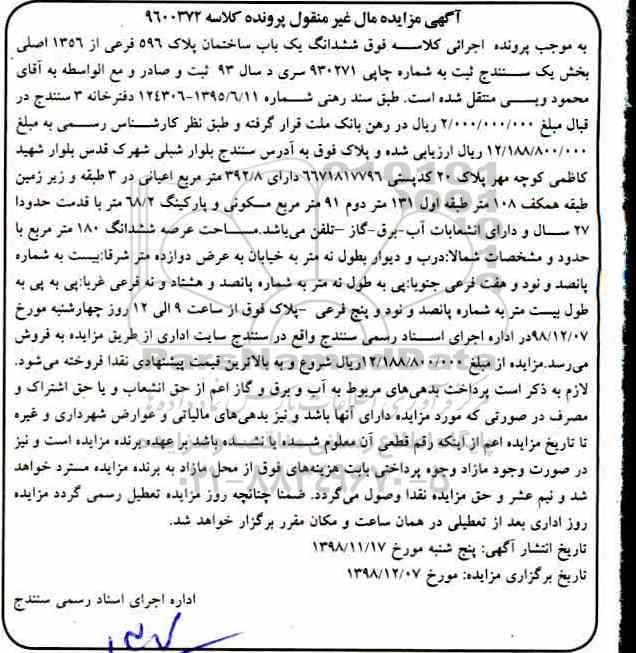 آگهی مزایده مال غیر منقول پرونده کلاسه ۹۶۰۰۳۷۲
به موجب پرونده اجرائی کلاسه فوق ششدانگ یک باب ساختمان پلاک ۵۹۶ فرعی از ۱۳۵۶ اصلی
بخش یک سنندج ثبت به شماره چاپی ۹۳۰۲۷۱ سری د سال ۹۳ ثبت و صادر و مع الواسطه به آقای
محمود ویسی منتقل شده است. طبق سند رهنی شماره ۱۲۴۳۰۶-۱۳۹۵/۶/۱۱ دفترخانه ۳ سنندج در
قبال مبلغ ۲/۰۰۰/۰۰۰/۰۰۰ ریال در رهن بانک ملت قرار گرفته و طبق نظر کارشناس رسمی به مبلغ
۱۲/۱۸۸/۸۰۰/۰۰۰ ریال ارزیابی شده و پلاک فوق به آدرس سنندج بلوار شبلی شهرک قدس بلوار شهید
کاظمی کوچه مهر پلاک ۲۰ کدپستی ۶۶۷۱۸۱۷۷۹۶ دارای ۳۹۲/۸ متر مربع اعیانی در ۳ طبقه و زیر زمین
طبقه همکف ۱۰۸ متر طبقه اول ۱۳۱ متر دوم ۹۱ متر مربع مسکونی و پارکینگ ۶۸/۲ متر با قدمت حدودا
۲۷ سال و دارای انشعابات آب-برق-گاز -تلفن می‌باشد.مساحت عرصه ششدانگ ۱۸۰ متر مربع با
حدود و مشخصات شمالا:درب و دیوار بطول نه متر به خیابان به عرض دوازده متر شرقا:بیست به شماره
پانصد و نود و هفت فرعی جنوبا:پی به طول نه متر به شماره پانصد و هشتاد و نه فرعی غربا:پی به پی به
طول بیست متر به شماره پانصد و نود و پنج فرعی -پلاک فوق از ساعت ۹ الی ۱۲ روز چهارشنبه مورخ
۹۸/۱۲/۰۷در اداره اجرای اسناد رسمی سنندج واقع در سنندج سایت اداری از طریق مزایده به فروش
می‌رسد.مزایده از مبلغ ۱۲/۱۸۸/۸۰۰/۰۰۰ریال شروع و به بالاترین قیمت پیشنهادی نقدا فروخته می‌شود.
لازم به ذکر است پرداخت بدهی‌های مربوط به آب و برق و گاز اعم از حق انشعاب و یا حق اشتراک و
مصرف در صورتی که مورد مزایده دارای آنها باشد و نیز بدهی‌های مالیاتی و عوارض شهرداری و غیره
تا تاریخ مزایده اعم از اینکه رقم قطعی آن معلوم شده یا نشده باشد بر عهده برنده مزایده است و نیز
در صورت وجود مازاد وجوه پرداختی بابت هزینه‌های فوق از محل مازاد به برنده مزایده مسترد خواهد
شد و نیم عشر و حق مزایده نقدا وصول می‌گردد. ضمنا چنانچه روز مزایده تعطیل رسمی گردد مزایده
روز اداری بعد از تعطیلی در همان ساعت و مکان مقرر برگزار خواهد شد.
تاریخ انتشار آگهی: پنج شنبه مورخ ۱۳۹۸/۱۱/۱۷
تاریخ برگزاری مزایده: مورخ ۱۳۹۸/۱۲/۰۷
اداره اجرای اسناد رسمی سنندج
ParsNamadData
۰۲۱-۸۸۳۴۹۶۷۰-۵